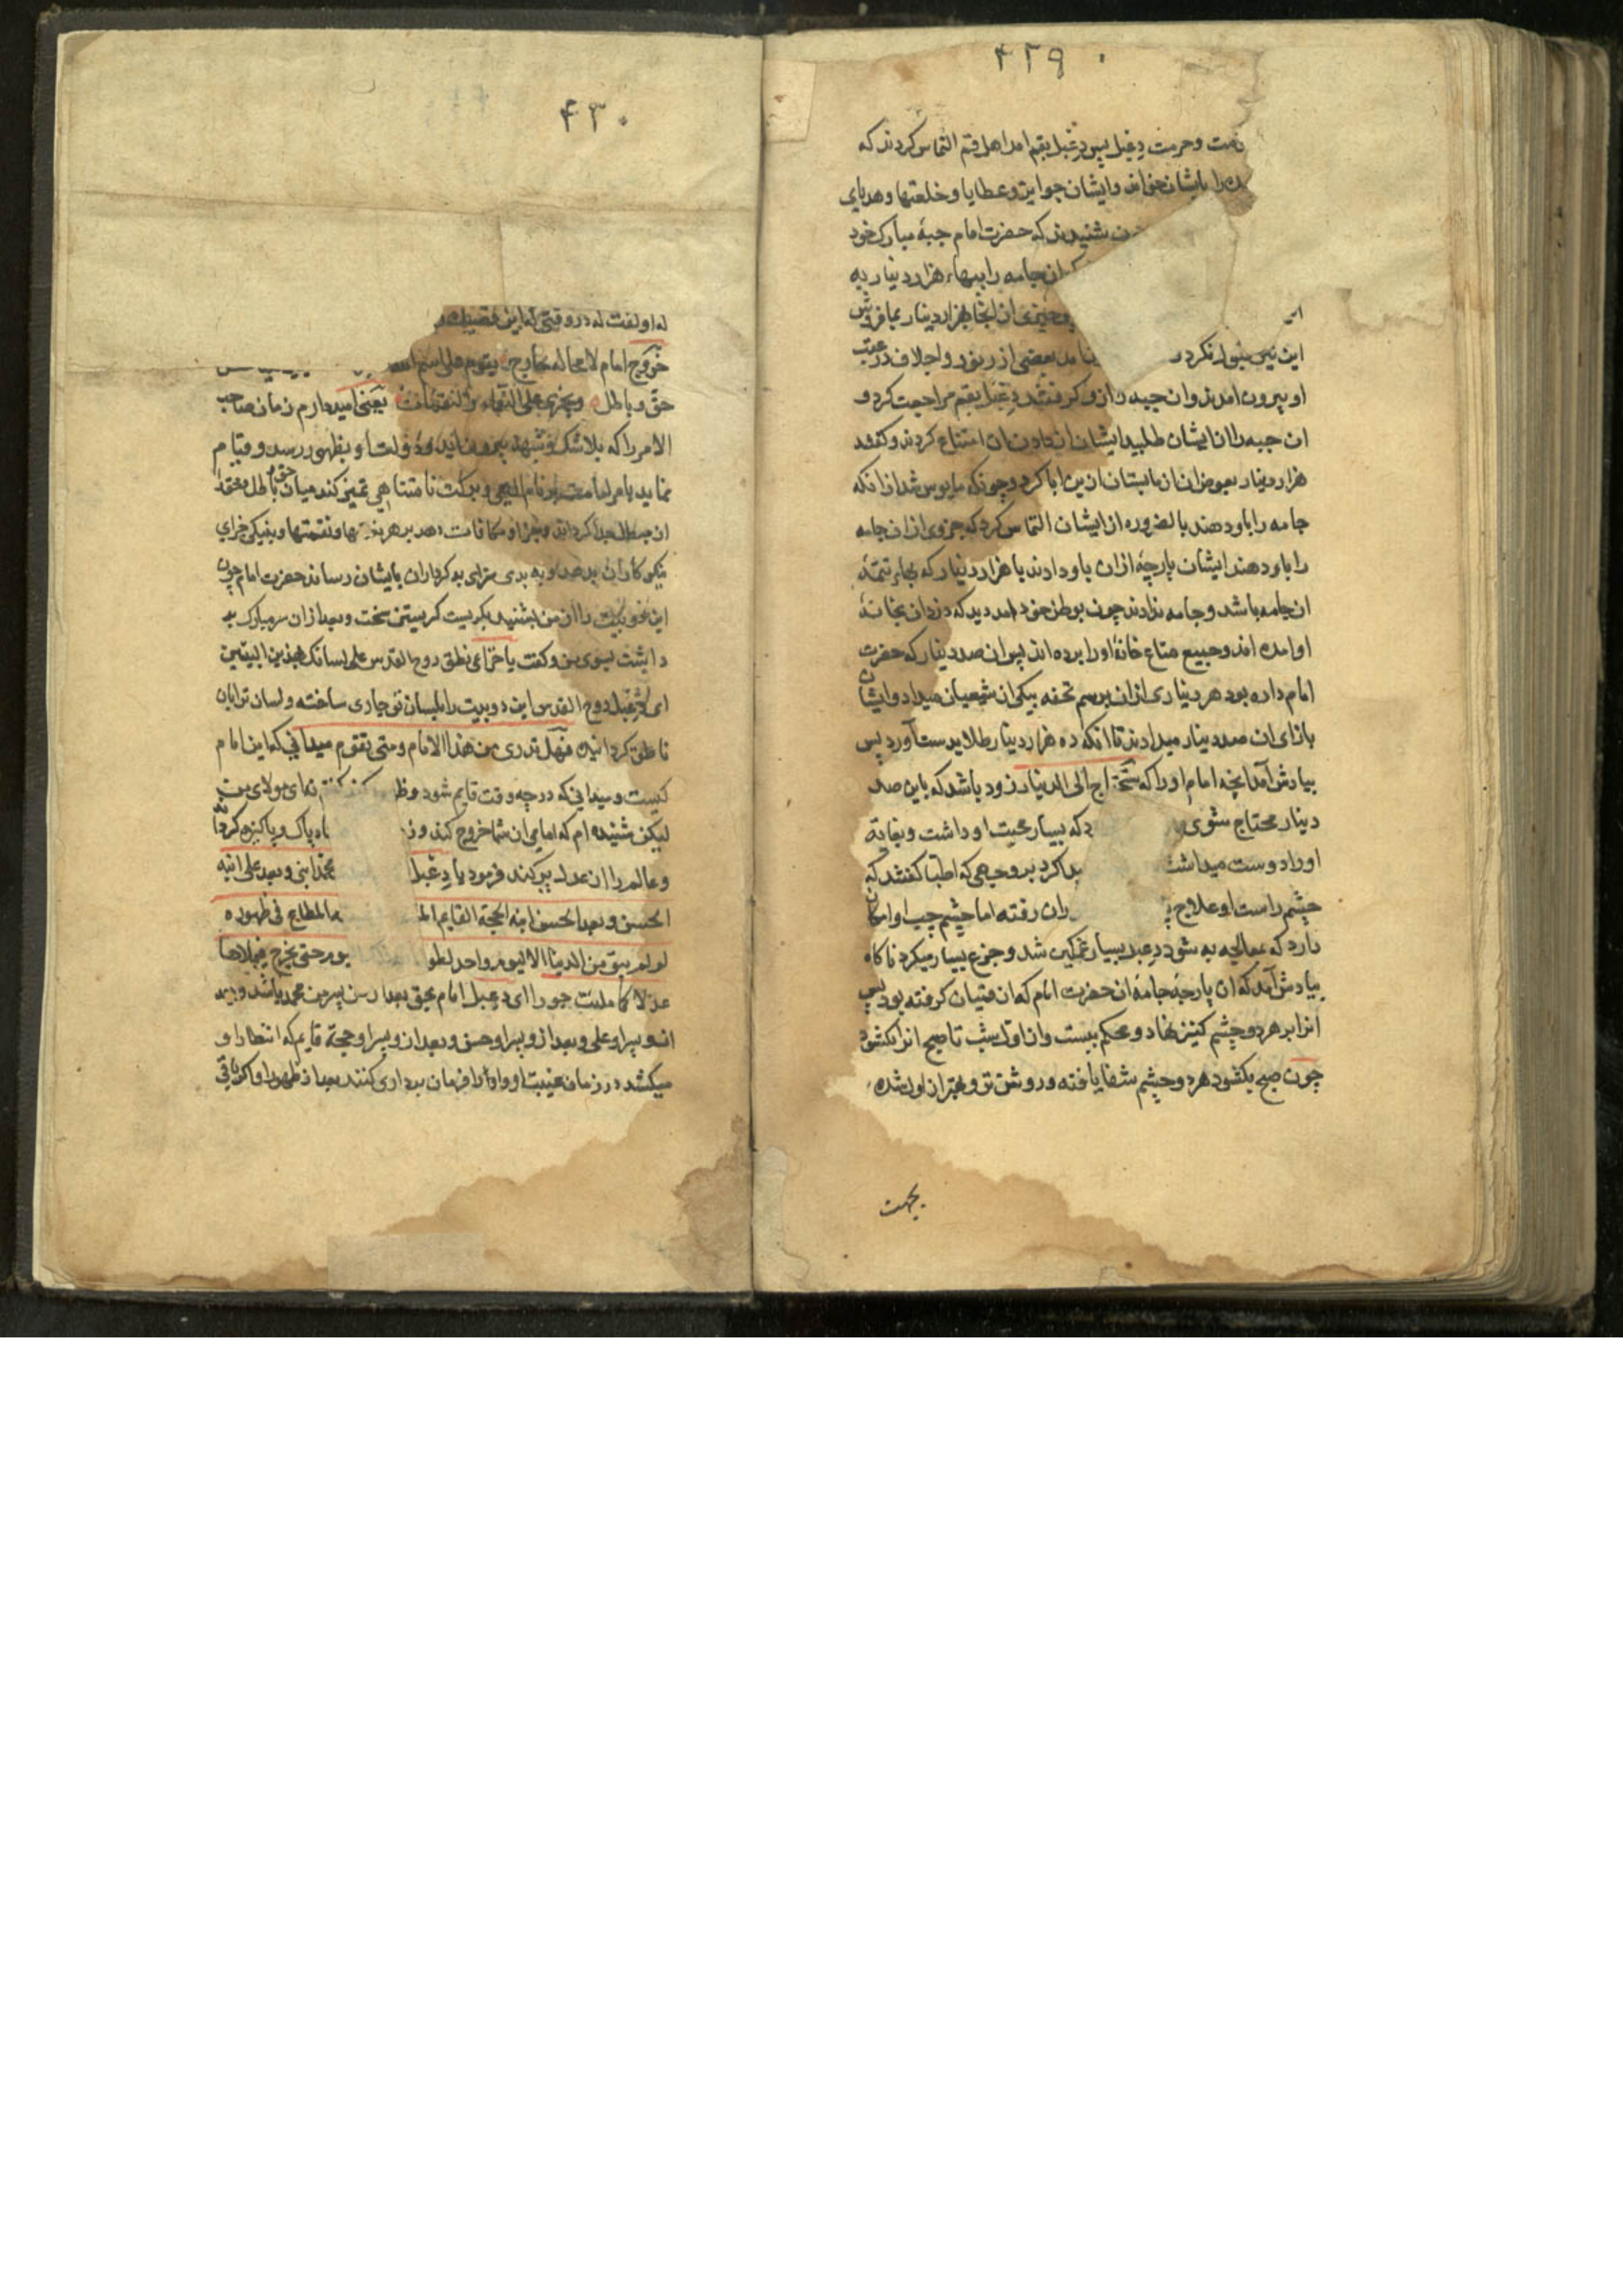 ۴۲۹
وحرمت دعبل پس دعبل بقم امد اهل قم التماس کردند که
را بایشان خواند وایشان جوایز وعطایا وخلعتها وهدیای
شنیدند که حضرت امام جبهٔ مبارک خود
ان جامه را ببهاء هزار دینار به
از انجا بهزار دینار بما فروش
این نیز قبول نکرد بعضی از رنود واجلاف در عقب
او بیرون امدند وان جبه را از و گرفتند دعبل بقم مراجعت کرد و
ان جبه را از ایشان طلبید ایشان از دادن ان امتناع کردند وگفتند
هزار دینار بعوض ان از ما بستان ازین ابا کرد وچونکه مایوس شد از انکه
جامه را باو دهند بالضروره از ایشان التماس کرد که جزوی از ان جامه
را باو دهند ایشان پارچهٔ ازان باو دادند با هزار دینار که بجاء تتمهٔ
ان جامه باشد وجامه ندادند چون بوطن خود امد دید که دزدان بخانهٔ
او امده اند وجمیع متاع خانهٔ او را برده اند پس ان صد دینار که حضرت
امام داده بود هر دیناری ازان برسم تحفه بیکی از شیعیان میداد وایشان
بازای ان صد دینار میدادند تا انکه ده هزار دینار طلا بدست آورد پس
بیادش آمد انچه امام او را که ستحتاج الی الدینار زود باشد که باین صد
دینار محتاج شوی که بسیار محبت او داشت وبغایة
او را دوست میداشت کرد بروجهی که اطبا گفتند که
چشم راست او علاج رفته اما چشم چپ او امکان
دارد که بمعالجه به شود دعبل بسیار غمگین شد وجزع بسیار میکرد ناکاه
بیادش آمد که ان پارچهٔ جامه ان حضرت امام که ازقمیان گرفته بود پس
انرا بر هر دو چشم کنیز نهاد ومحکم ببست واز اول شب تا صبح انرا نکشود
چون صبح بکشود هر دو چشم شفا یافته وروشن تر وبهتر از اول شده
بجهت
۴۳۰
له او گفت که در وقتی که این قصیده
خروج امام لا محاله خارج یقوم علی اسم الله
حق وباطل ویجزی علی النعماء والنقمات یعنی امیدوارم زمان صاحب
الامر را که بلا شک وشبهه بیرون اید ودولت او بظهور رسد وقیام
نماید بامر امامت بنام الهی وبرکت نامتناهی تمیز کند میان حق وباطل
از مبطل جدا گرداند وجزا ومکافات دهد بر نعمتها ونقمتها وبنیکی جزای
نیکوکاران وبه بدی سزای بدکرداران بایشان رساند حضرت امام چون
این دو بیت را از من بشنید بگریست گریستن سخت وبعد ازان سر مبارک بر
داشت بسوی من وگفت یا خزاعی نطق روح القدس علی لسانک بهذین البیتین
ای دعبل روح القدس این دو بیت را بلسان تو جاری ساخته ولسان ترا بان
ناطق گردانید فهل تدری من هذا الامام ومتی یقوم میدانی که این امام
کیست ومیدانی که در چه وقت قایم شود گفتم نه ای مولای من
لیکن شنیده ام که امامی از شما خروج کند پاک وپاکیزه گرداند
وعالم را از عدل پر کند فرمود یا دعبل محمد ابنی وبعد علی ابنه
الحسن وبعد الحسن ابنه الحجة القایم المطاع فی ظهوره
لو لم یبق من الدنیا الا یوم واحد لطول حتی یخرج فیملاها
عدلا کما ملئت جورا ای دعبل امام بحق بعد از من پسر من محمد باشد وبعد
از و پسر او علی وبعد از و پسر او حسن وبعد ازو پسر او حجة قایم که انتظار او
میکشند در زمان غیبت او واو را فرمان برداری کنند بعد از ظهور او اگر باقی